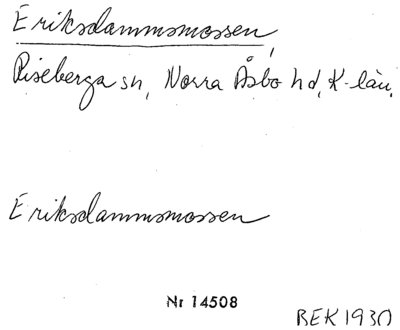 Eriksdammsmossen,
Riseberga sn, Norra Åsbo hd, K-län.
Eriksdammsmossen
Nr 14508
BEK 1930